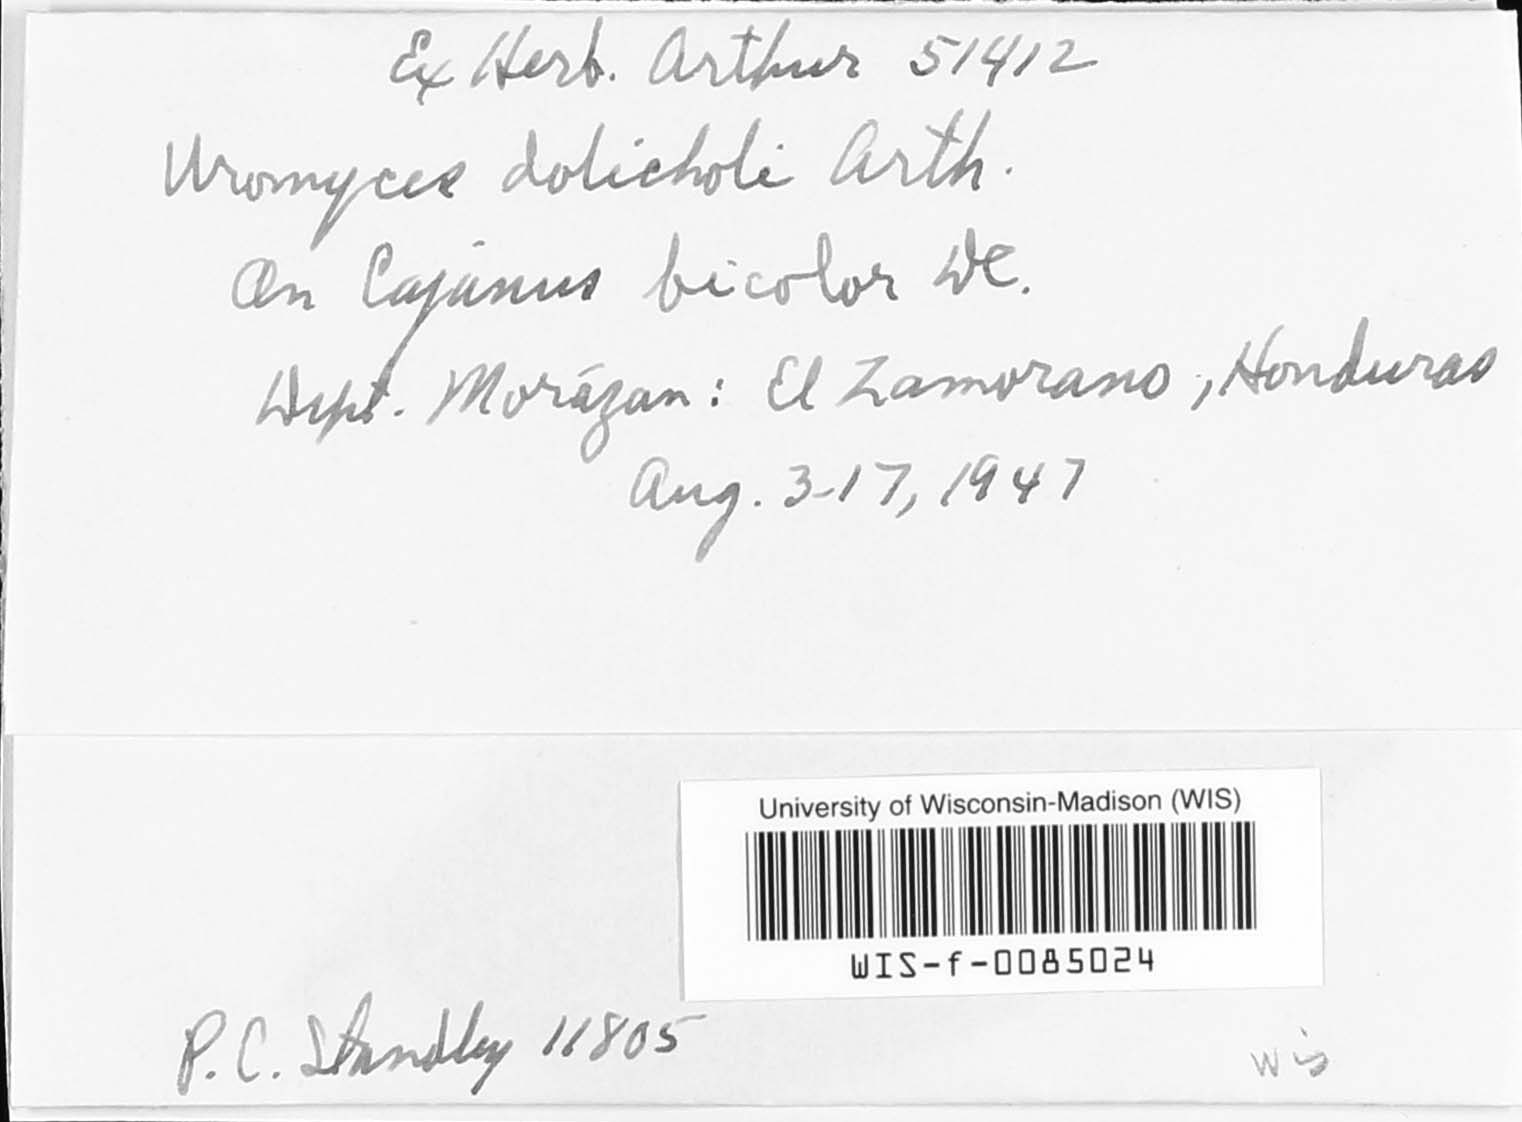 Ex Herb. Arthur 51412
Uromyces dolicholi Arth.
On Cajanus bicolor DC.
Dept. Morázan: El Zamorano, Honduras
Aug. 3-17, 1947
University of Wisconsin-Madison (WIS)
WIS-f-0085024
P. C. Standley 11805
Wis